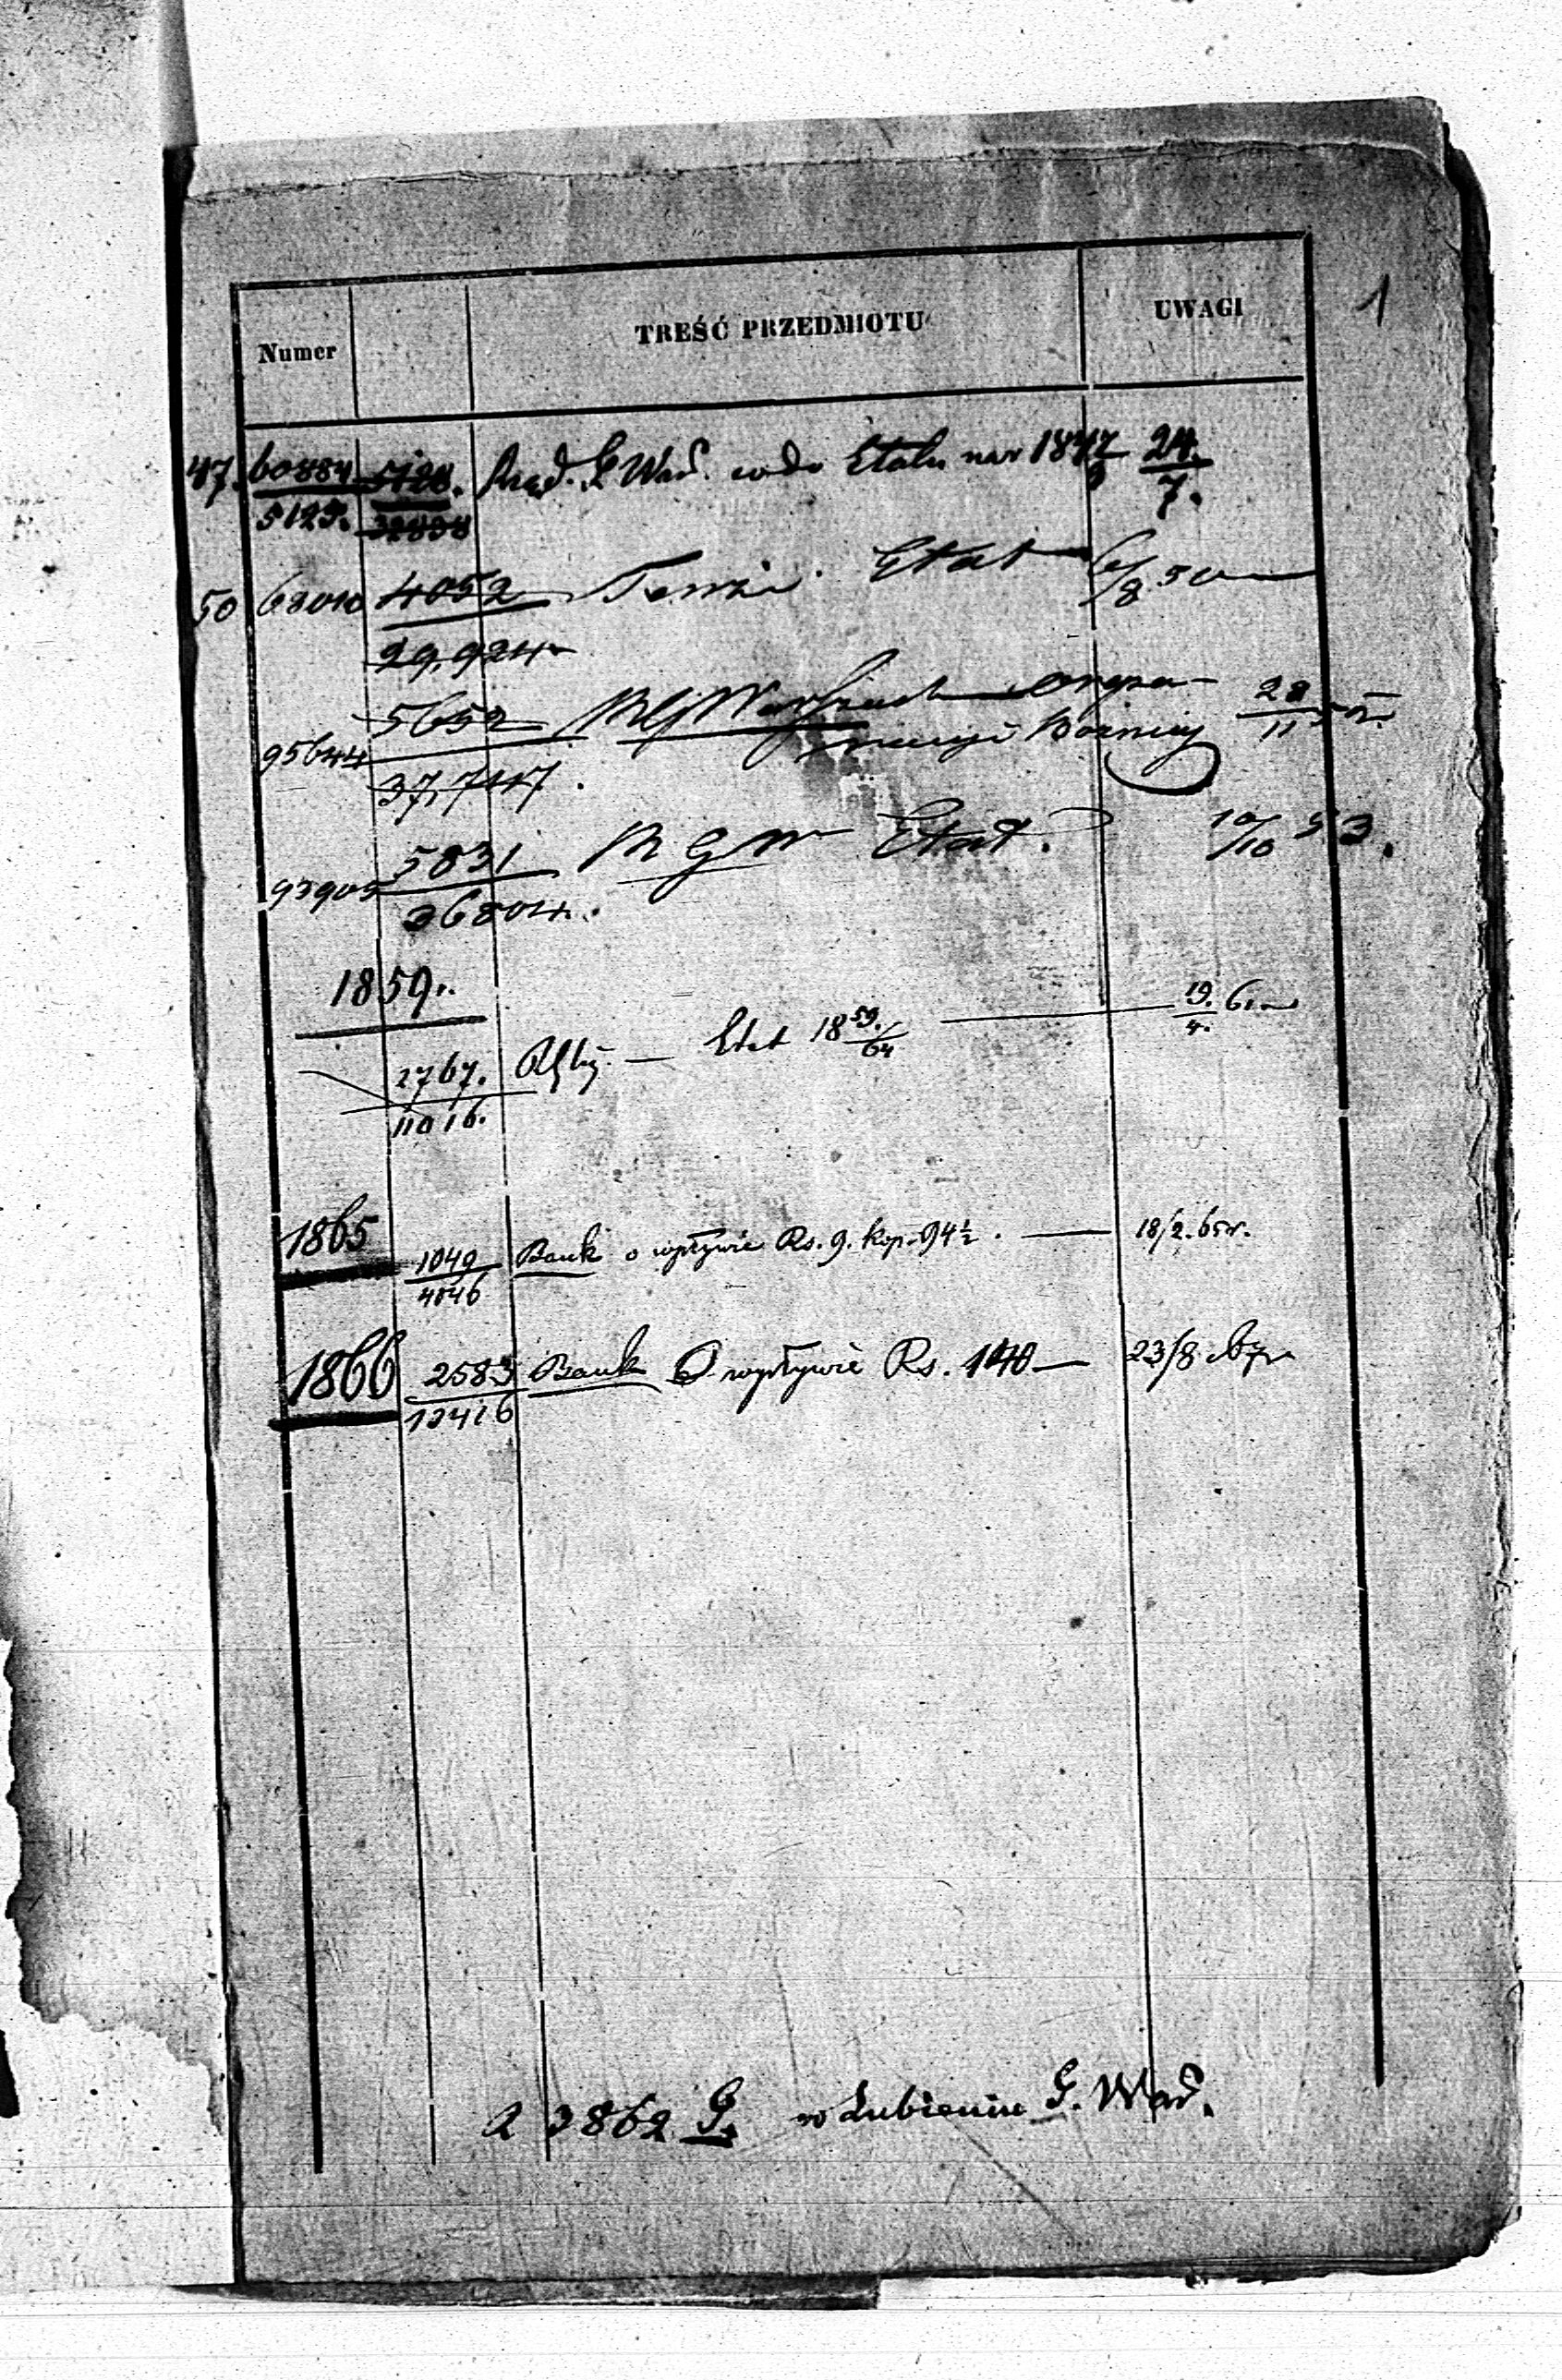 1
Numer TREŚĆ PRZEDMIOTU UWAGI
47. 60884 5128. Rząd. G. War. co do Etatu na r 1847 24
5125. 32898 9 7.
50 68010 4052 Tenże. Etat 6/8 50
29,924
5652 RG Warszaw orga- 28
95644 nizacyi Bóżnicy 11 52
37,747.
5831 R G W Etat. 10/10 53.
93905
36804.
1859.
2767. Etat 18 59./64 19. 61
11016. 4.
1865
1049 Bank o wpływie Rs. 9. kop. 94½. — 18/2. 65r.
4846
1866 2583 Bank O wpływie Rs. 140 — 23/8 67r
12416
a 3862 G. w Lubieniu G. War.